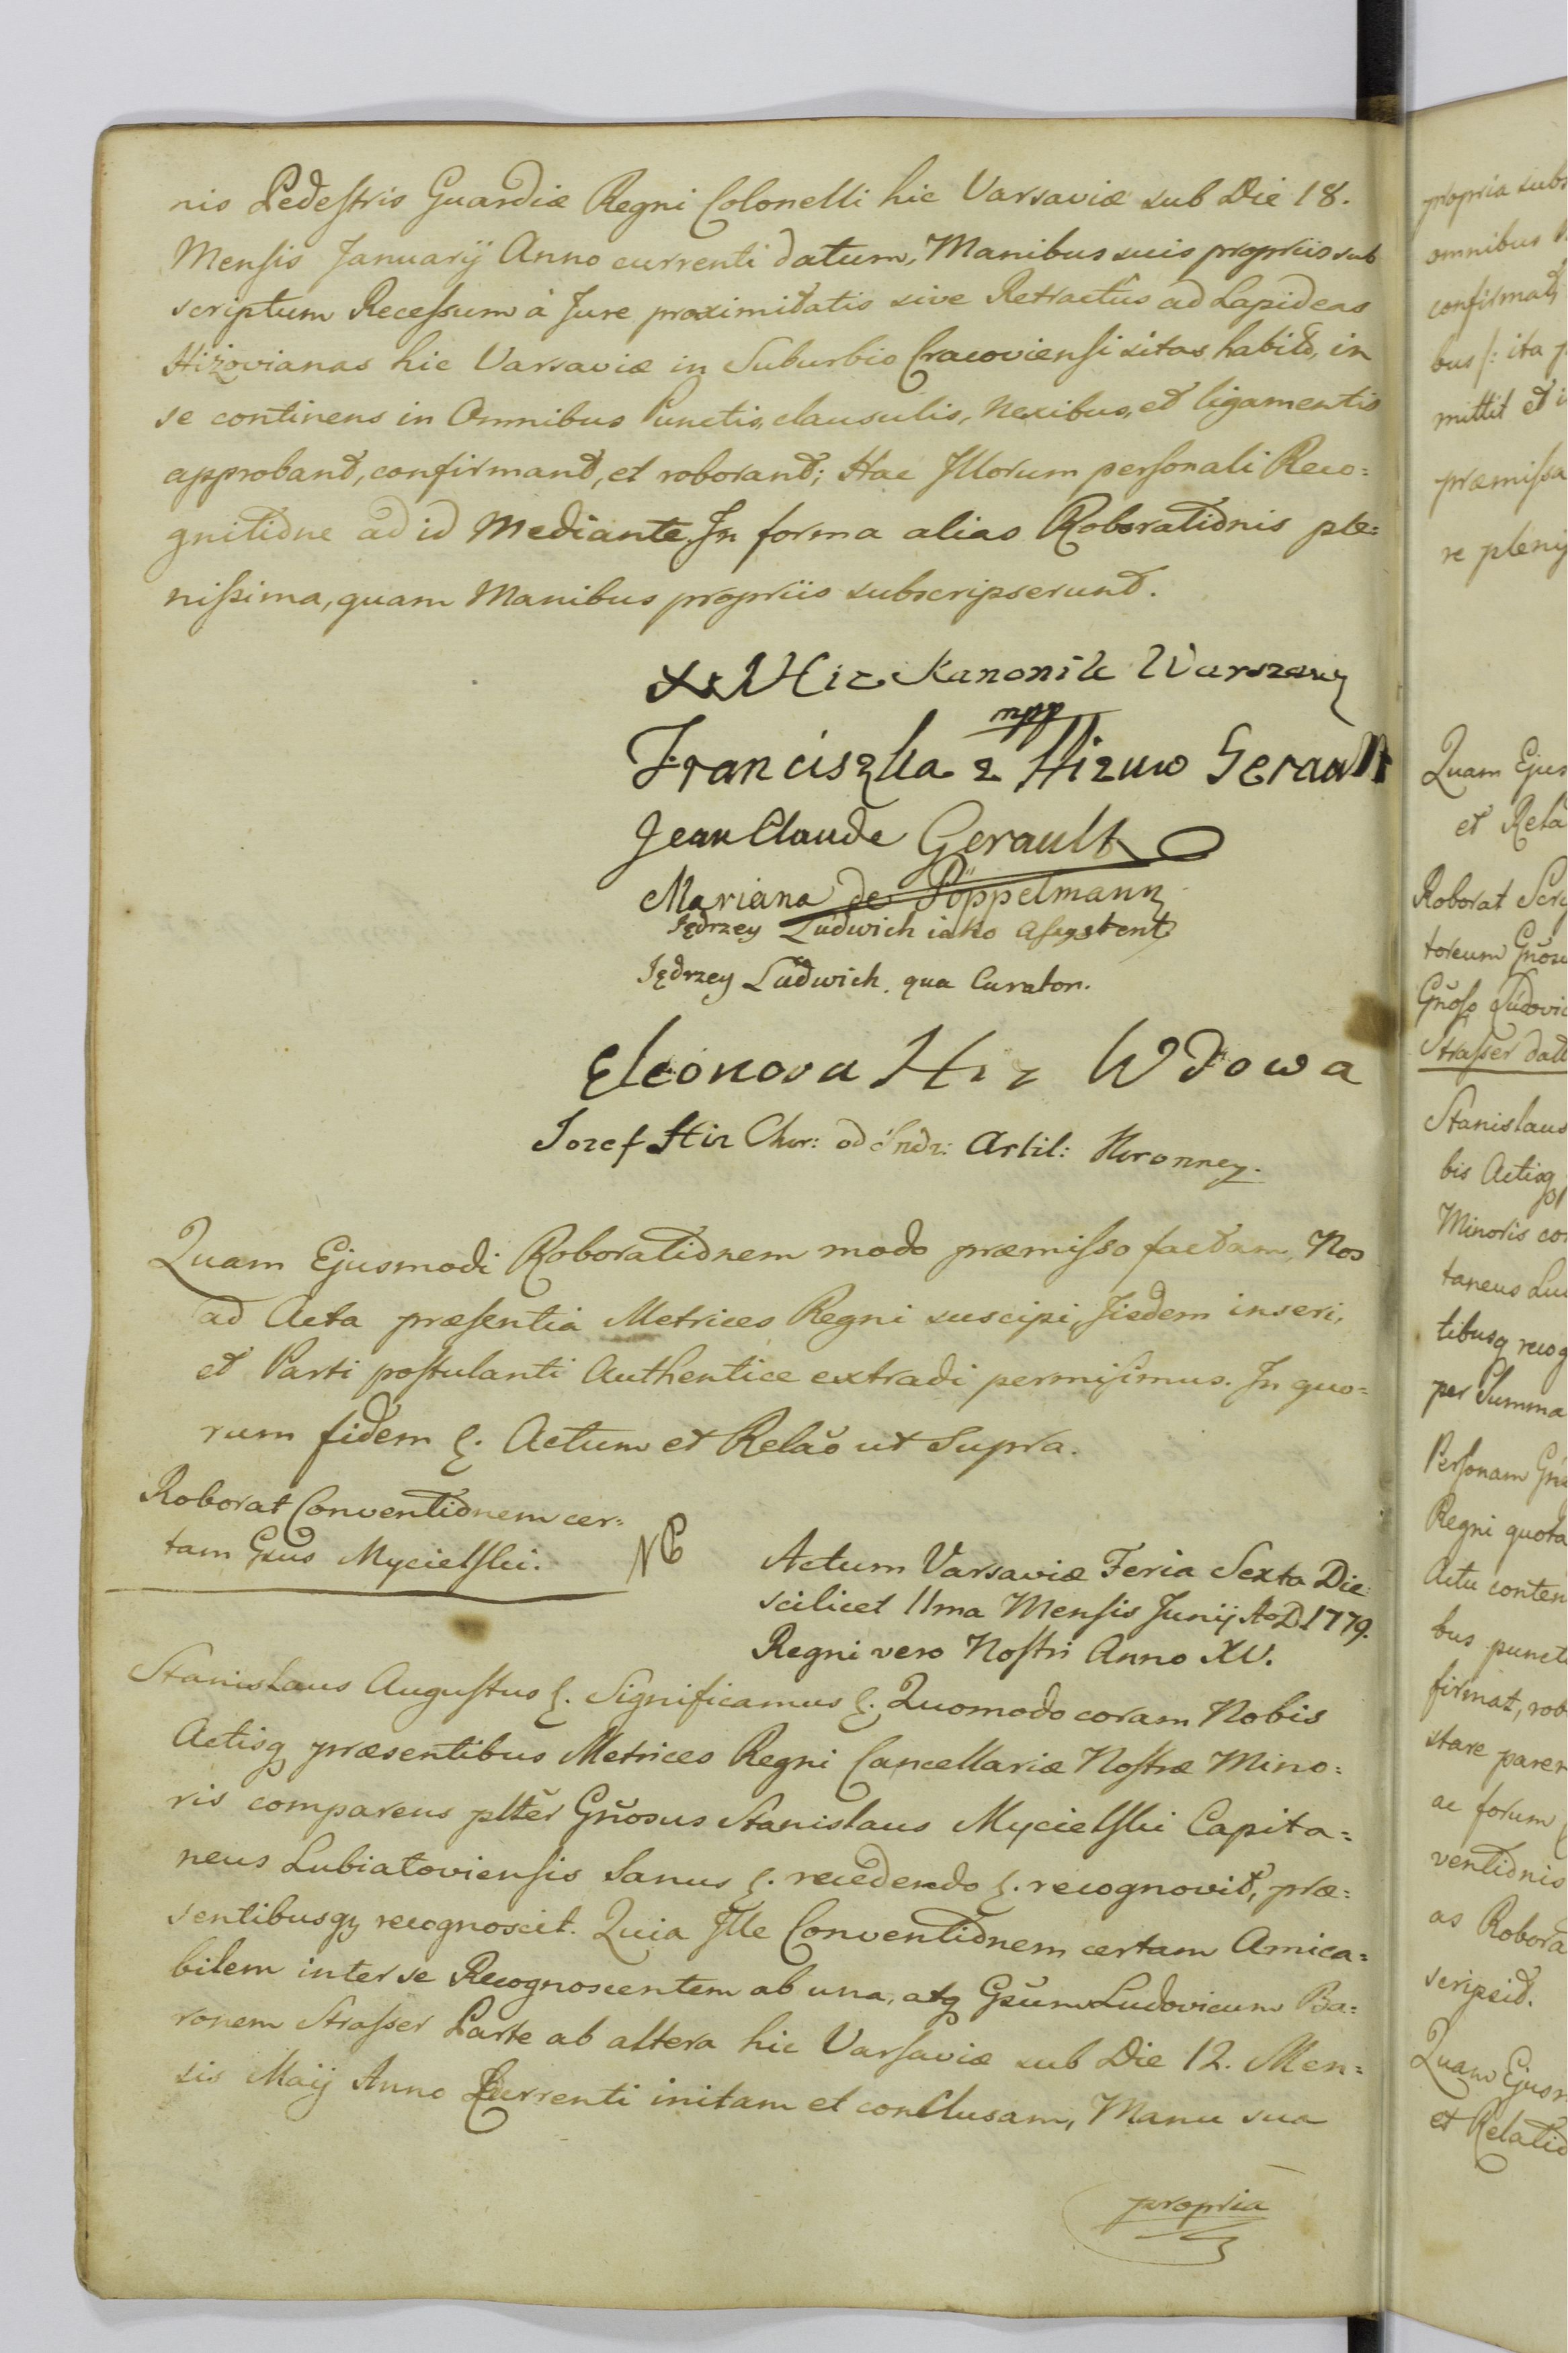 nis Pedestris Guardiæ Regni Colonelli hic Varsaviæ sub Die 18.
Mensis Januarij Anno currenti datum, Manibus suis propriis sub
scriptum Recessum à Jure proximitatis sive Retractus ad Lapideas
Hiżovianas hic Varsaviæ in Suburbio Cracoviensi sitas habit, in
se continens in Omnibus Punctis, clausulis, Nexibus, et ligamentis
approband, confirmand, et roborand; Hac Illorum personali Reco=
gnitione ad id Mediante. In forma alias Roborationis ple=
nissima, quam Manibus propriis subscripserunt.
Hiz Kanonik Warszawy
mpp
Franciszka z Hizuw Gerault
Jean Claude Gerault
Mariana de Pöppelmann
Jędrzey Ludwich iako Assystent
Jędrzey Ludwich. qua Curator.
Eleonora Hiz Wdowa
Jozef Hiz Chor: od Artil: Koronney.
Quam Ejusmodi Roborationem modo præmisso factam, Nos
ad Acta præsentia Metrices Regni suscipi, Iisdem inseri,
et Parti postulanti Authentice extradi permisimus. In quo=
rum fidem &. Actum et Relão ut Supra.
Roborat Conventionem cer=
tam Gsus Mycielski.
Actum Varsaviæ Feria Sexta Die
scilicet 11ma Mensis Junij AoD. 1779.
Regni vero Nostri Anno XV.
Stanislaus Augustus &. Significamus &. Quomodo coram Nobis
Actisq præsentibus Metrices Regni Cancellariæ Nostræ Mino=
ris comparens pltẽr Gñosus Stanislaus Mycielski Capita=
neus Lubiatoviensis Sanus &. recedendo &. recognovit, præ=
sentibusq recognoscit. Quia Ille Conventionem certam Amica=
bilem inter se Recognoscentem ab una, atq Gsum Ludovicum Ba=
ronem Strasser Parte ab altera hic Varsaviæ sub Die 12. Men=
sis Maij Anno Currenti initam et conclusam, Manu sua
propria
propria subs
omnibus
confirmat,
bus /: ita
mittit et i
præmissa
re plenij
Quam Ejus
et Rela
Roborat Scri
toreum Gñosu
Gñoso Ludovic
Strasser dat
Stanislaus
bis Actisq
Minoris co
taneus Lu
tibusq recog
per Summa
Personam Gñ
Regni quota
Actu conten
bus puncti
firmat, rob
stare parer
ac forum
ventionis
as Robora
scripsit.
Quam Ejusm
et Relatio